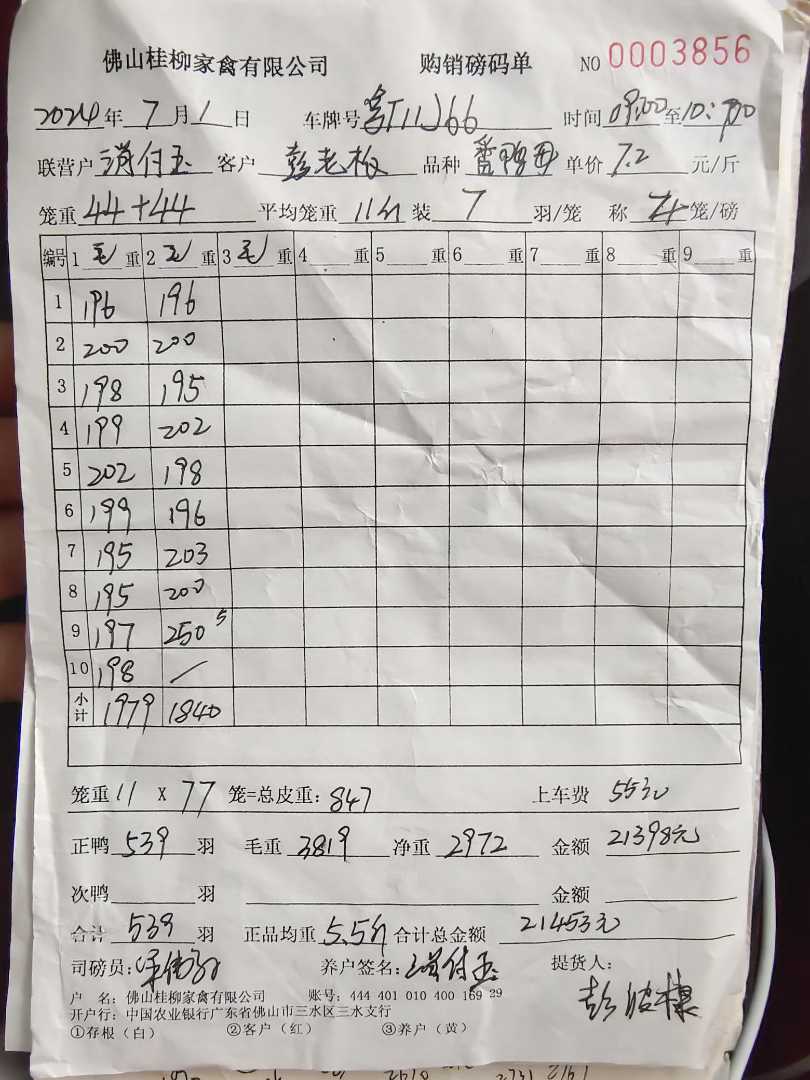 佛山桂柳家禽有限公司 购销磅码单 NO 0003856
2024年7月1日 车牌号 66 时间 09:00至10:00
联营户 付玉 客户 彭老板 品种 番鸭母 单价 7.2 元/斤
笼重 44+44 平均笼重 11斤 装 7 羽/笼 称 4 笼/磅
编号 1 毛 重 2 毛 重 3 毛 重 4 重 5 重 6 重 7 重 8 重 9 重
1 196 196
2 200 200
3 198 195
4 199 202
5 202 198
6 199 196
7 195 203
8 195 200
9 197 250 5
10 198 /
小计 1979 1840
笼重 11 X 77 笼=总皮重: 847 上车费 55元
正鸭 539 羽 毛重 3819 净重 2972 金额 21398元
次鸭 羽 金额
合计 539 羽 正品均重 5.5斤 合计总金额 21453元
司磅员: 养户签名: 付玉 提货人:
彭
户 名: 佛山桂柳家禽有限公司 账号: 444 401 010 400 169 29
开户行: 中国农业银行广东省佛山市三水区三水支行
①存根（白） ②客户（红） ③养户（黄）